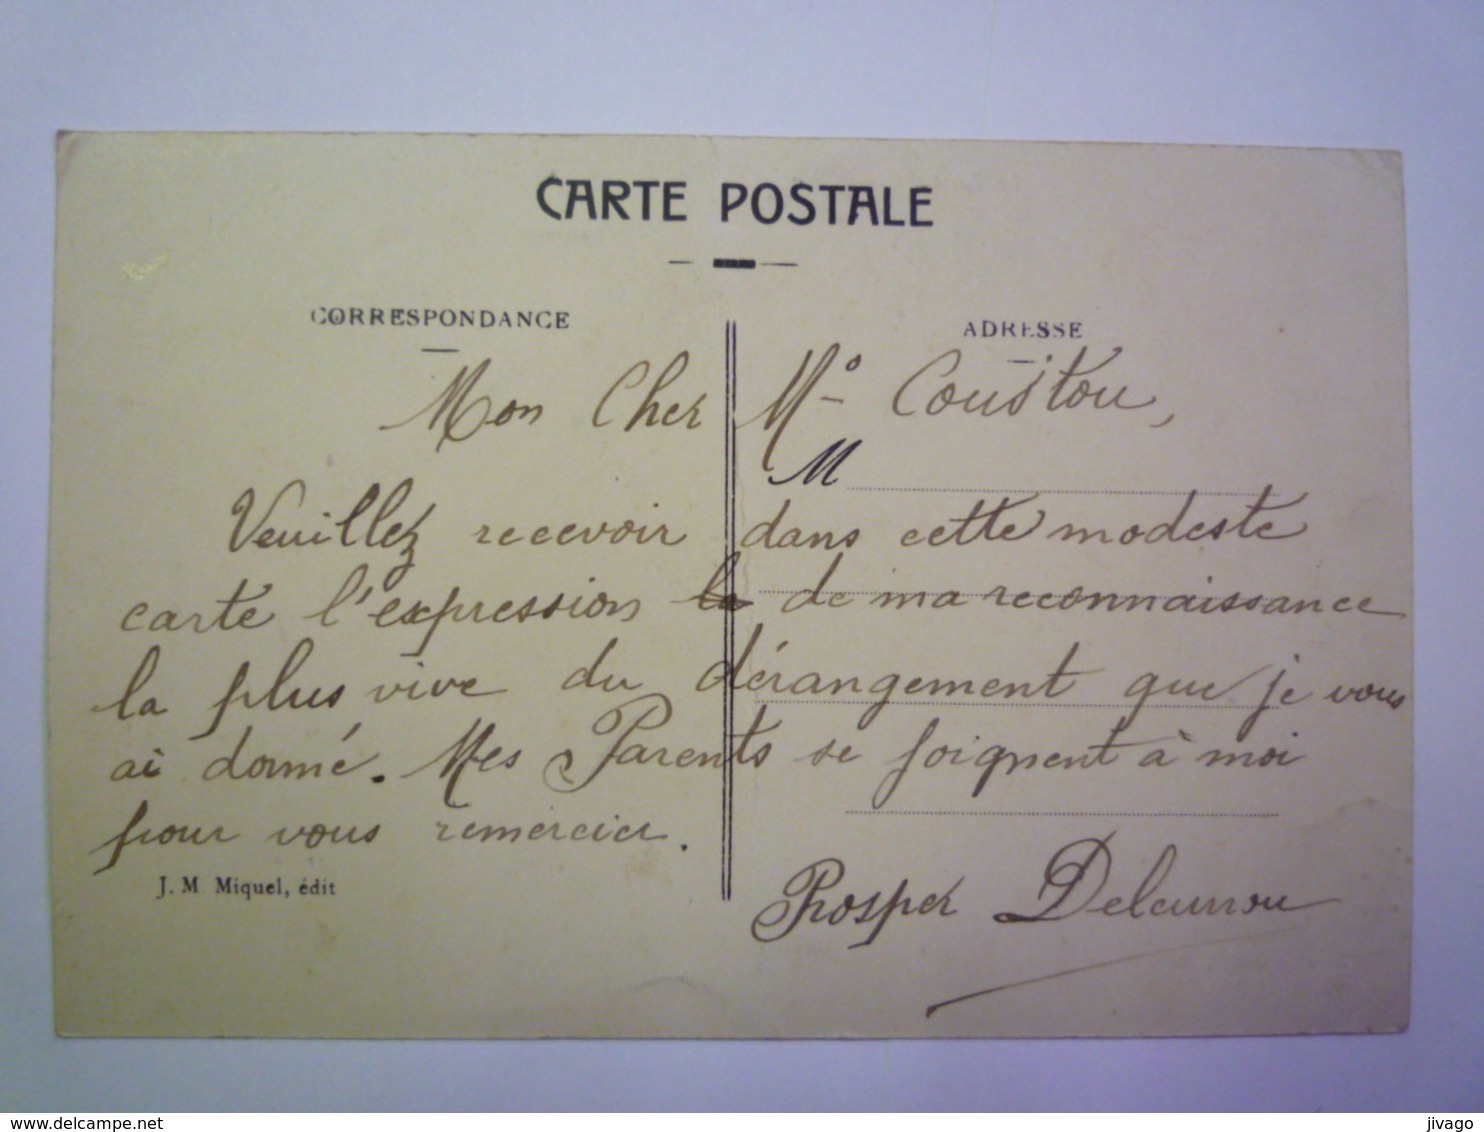 CARTE POSTALE
CORRESPONDANCE
ADRESSE
Mon Cher Mº Coustou,
M
Veuillez recevoir dans cette modeste
carte l'expression de ma reconnaissance
la plus vive du dérangement que je vous
ai donné. Mes Parents se joignent à moi
pour vous remercier.
J. M. Miquel, édit
Prosper
www.delcampe.net
jivago